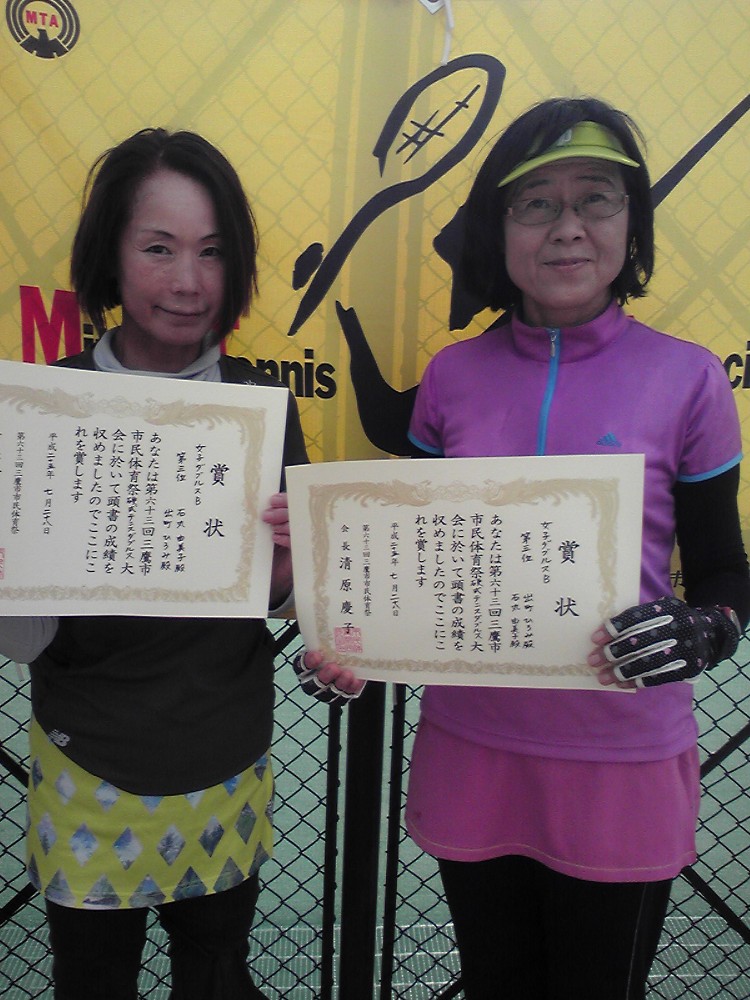 MTA
M
ennis
ci
賞状
女子ダブルスB
第三位
石沢 由美子殿
出町 ひろみ殿
あなたは第六十三回三鷹市
市民体育祭硬式テニスダブルス大
会に於いて頭書の成績を
収めましたのでここにこ
れを賞します
平成二十五年 七月二十八日
第六十三回三鷹市市民体育祭
賞状
女子ダブルスB
第三位
出町 ひろみ殿
石沢 由美子殿
あなたは第六十三回三鷹市
市民体育祭硬式テニスダブルス大
会に於いて頭書の成績を
収めましたのでここにこ
れを賞します
平成二十五年 七月二十八日
第六十三回三鷹市市民体育祭
会長 清原慶子